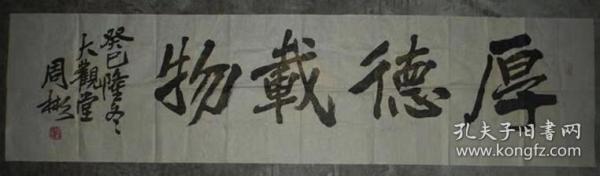 厚德載物
癸巳隆冬
大觀堂
周彬
孔夫子旧书网
www.kongfz.com